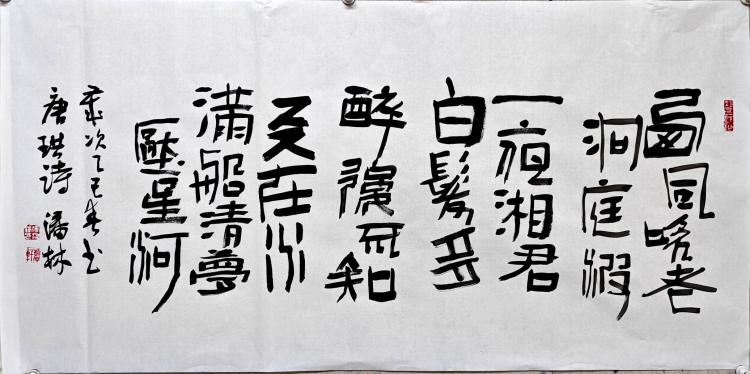 西風吹老
洞庭波
一夜湘君
白髮多
醉後不知
天在水
滿船清夢
壓星河
歲次乙巳春书
唐珙诗 潘林